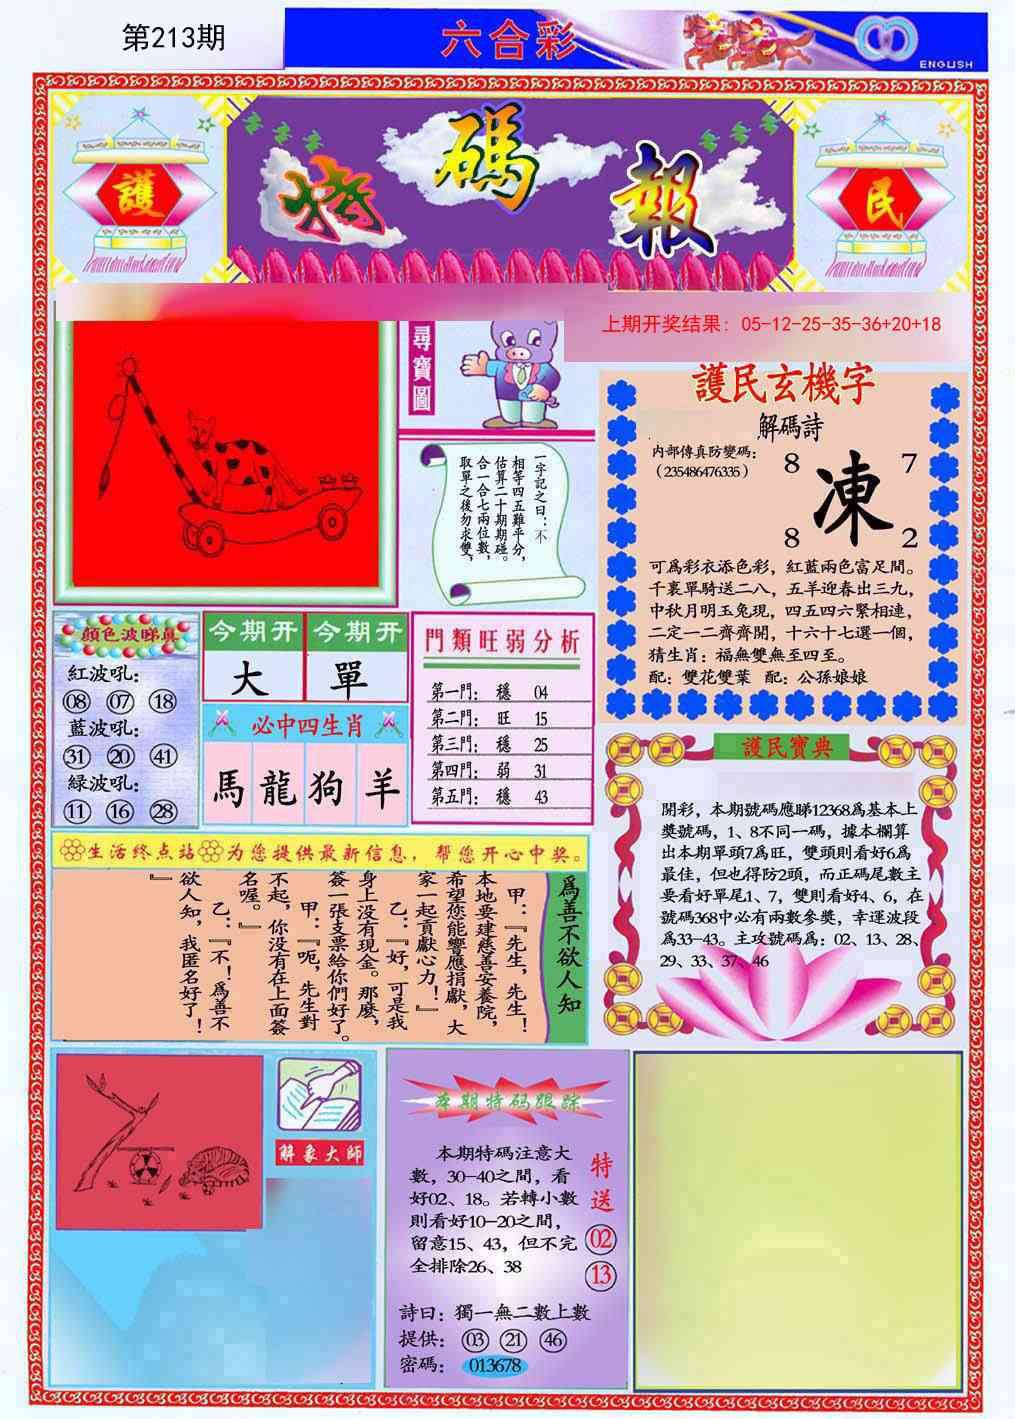 第213期
六合彩
ENGLISH
護
特碼報
民
上期开奖结果：05-12-25-35-36+20+18
尋寶圖
一字記之曰：不
相等四五難平分，
估算二十期期碰。
合一合七兩位數，
取單之後勿求雙，
護民玄機字
解碼詩
内部傳真防變碼：
（235486476335）
8 7
凍
8 2
可爲彩衣添色彩，紅藍兩色富足間。
千裏單騎送二八，五羊迎春出三九，
中秋月明玉兔現，四五四六緊相連，
二定一二齊齊開，十六十七選一個，
猜生肖：福無雙無至四至。
配：雙花雙葉 配：公孫娘娘
顔色波睇真
紅波吼：
08 07 18
藍波吼：
31 20 41
緑波吼：
11 16 28
今期开 今期开
大 單
必中四生肖
馬 龍 狗 羊
門類旺弱分析
第一門： 穩 04
第二門： 旺 15
第三門： 穩 25
第四門： 弱 31
第五門： 穩 43
護民寶典
開彩，本期號碼應睇12368爲基本上
獎號碼，1、8不同一碼，據本欄算
出本期單頭7爲旺，雙頭則看好6爲
最佳，但也得防2頭，而正碼尾數主
要看好單尾1、7，雙則看好4、6，在
號碼368中必有兩數參獎，幸運波段
爲33-43。主攻號碼爲：02、13、28、
29、33、37、46
生活终点站 为您提供最新信息，帮您开心中奖。
爲善不欲人知
甲：『先生，先生！
本地要建慈善安養院，
希望您能響應捐獻，大
家一起貢獻心力！』
乙：『好，可是我
身上没有現金。那麽，
簽一張支票給你們好了。
甲：『呃，先生對
不起，你没有在上面簽
名喔。』
乙：『不！爲善不
欲人知，我匿名好了！
』
解象大師
本期特码跟踪
本期特碼注意大
數，30-40之間，看
好02、18。若轉小數
則看好10-20之間，
留意15、43，但不完
全排除26、38
特送
02
13
詩曰：獨一無二數上數
提供： 03 21 46
密碼： 013678